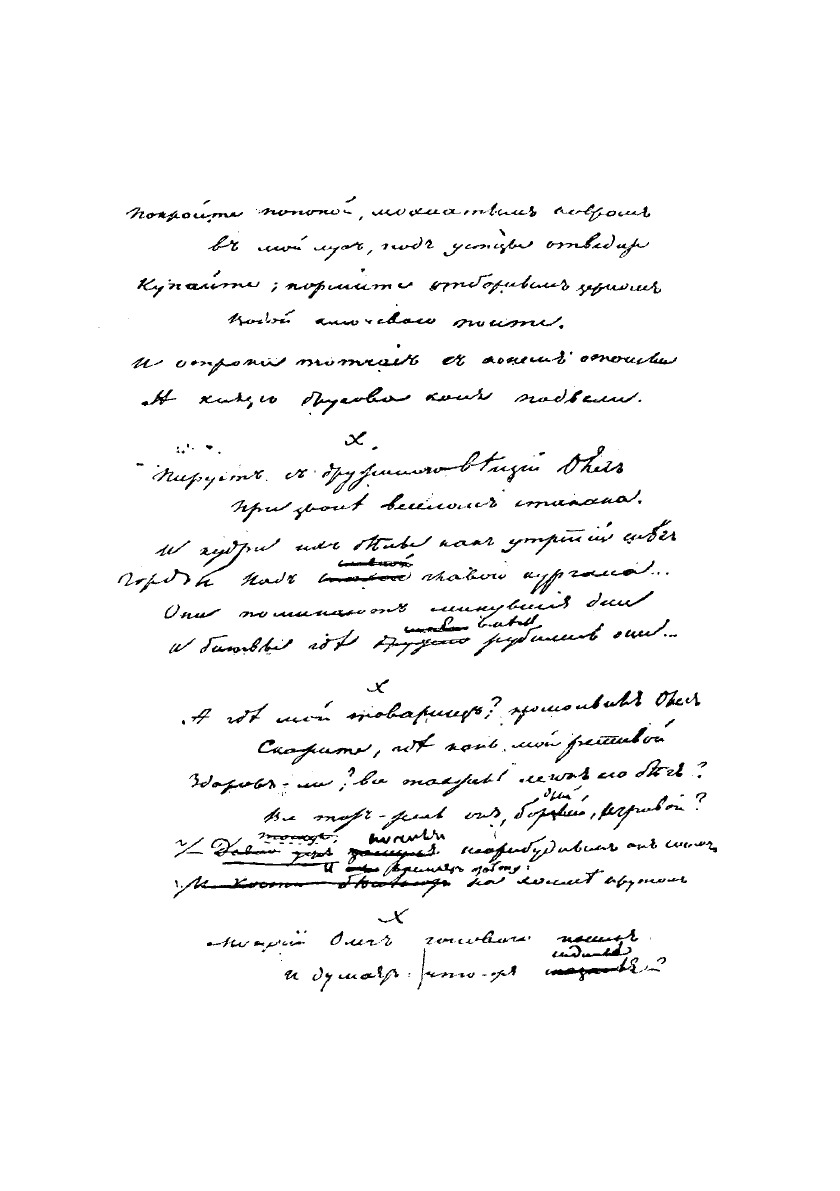 Покройте попоной, мохнатымъ ковромъ
Въ мой лугъ, подъ устцы отведите
Купайте; кормите отборнымъ зерномъ
Водой ключевою поите.
И отроки тотчасъ съ конемъ отошли
А князю другова коня подвели.
X.
Пируетъ съ дружиною вѣщій Олегъ
При звонѣ веселомъ стакана.
И кудри ихъ бѣлы какъ утрній снѣгъ
славной
Гордой надъ главою кургана...
Они поминаютъ минувшіе дни
вмѣстѣ
И битвы гдѣ дружно рубились они...
X
А гдѣ мой товарищъ? промолвилъ Олегъ
Скажите, гдѣ конь мой ретивой
Здоровъ-ли? все такъ же легокъ его бѣгъ?
Все тотъ-же онъ, бурный, игривой?
Давно ужъ непробуднымъ онъ сномъ
И кости на холмѣ крутомъ
X
Могучій Олегъ головою
И думаетъ: что-же